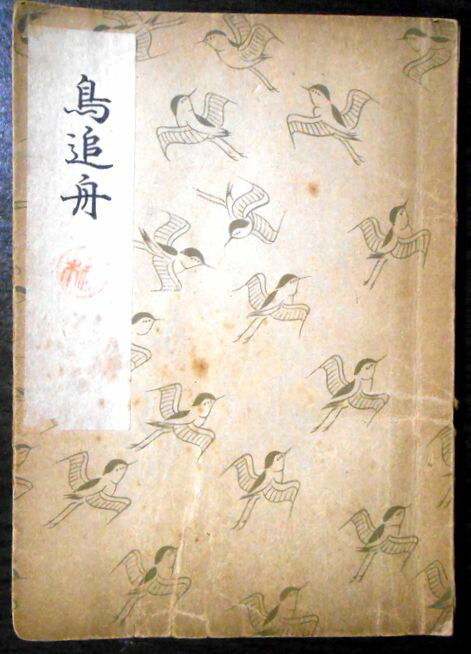 鳥追舟